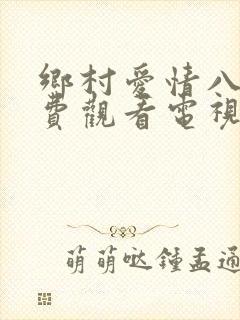 鄉村愛情八
費觀看電視
萌萌哒鍾孟通